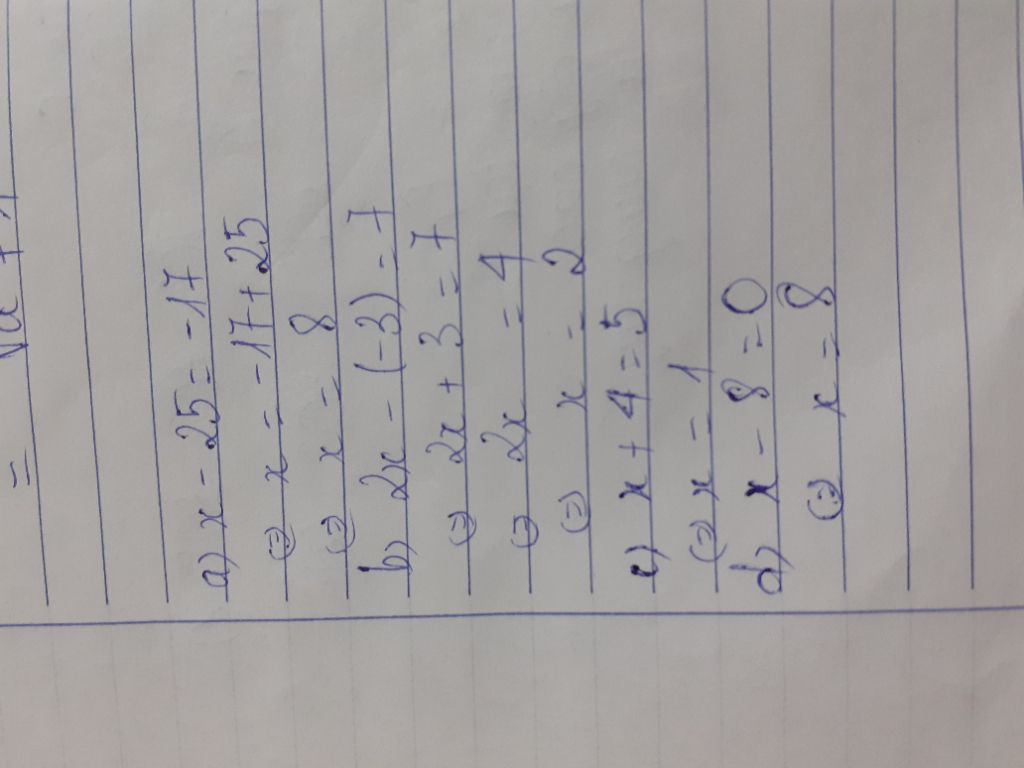 =
a) x - 25 = -17
⇔ x = -17 + 25
⇔ x = 8
b) 2x - (-3) = 7
⇔ 2x + 3 = 7
⇔ 2x = 4
⇔ x = 2
c) x + 4 = 5
⇔ x = 1
d) x - 8 = 0
⇔ x = 8